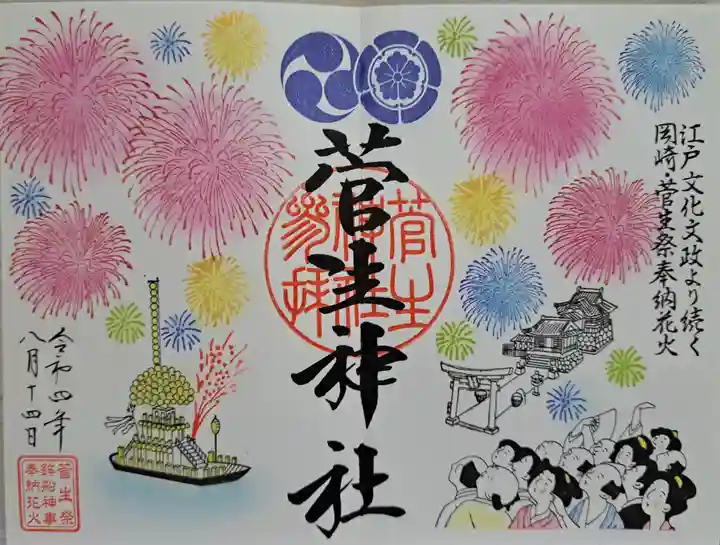 江戸文化文政より続く
岡崎・菅生祭奉納花火
菅生神社
菅生
神社
参拝
令和四年
八月十四日
菅生祭
鉾船神事
奉納花火